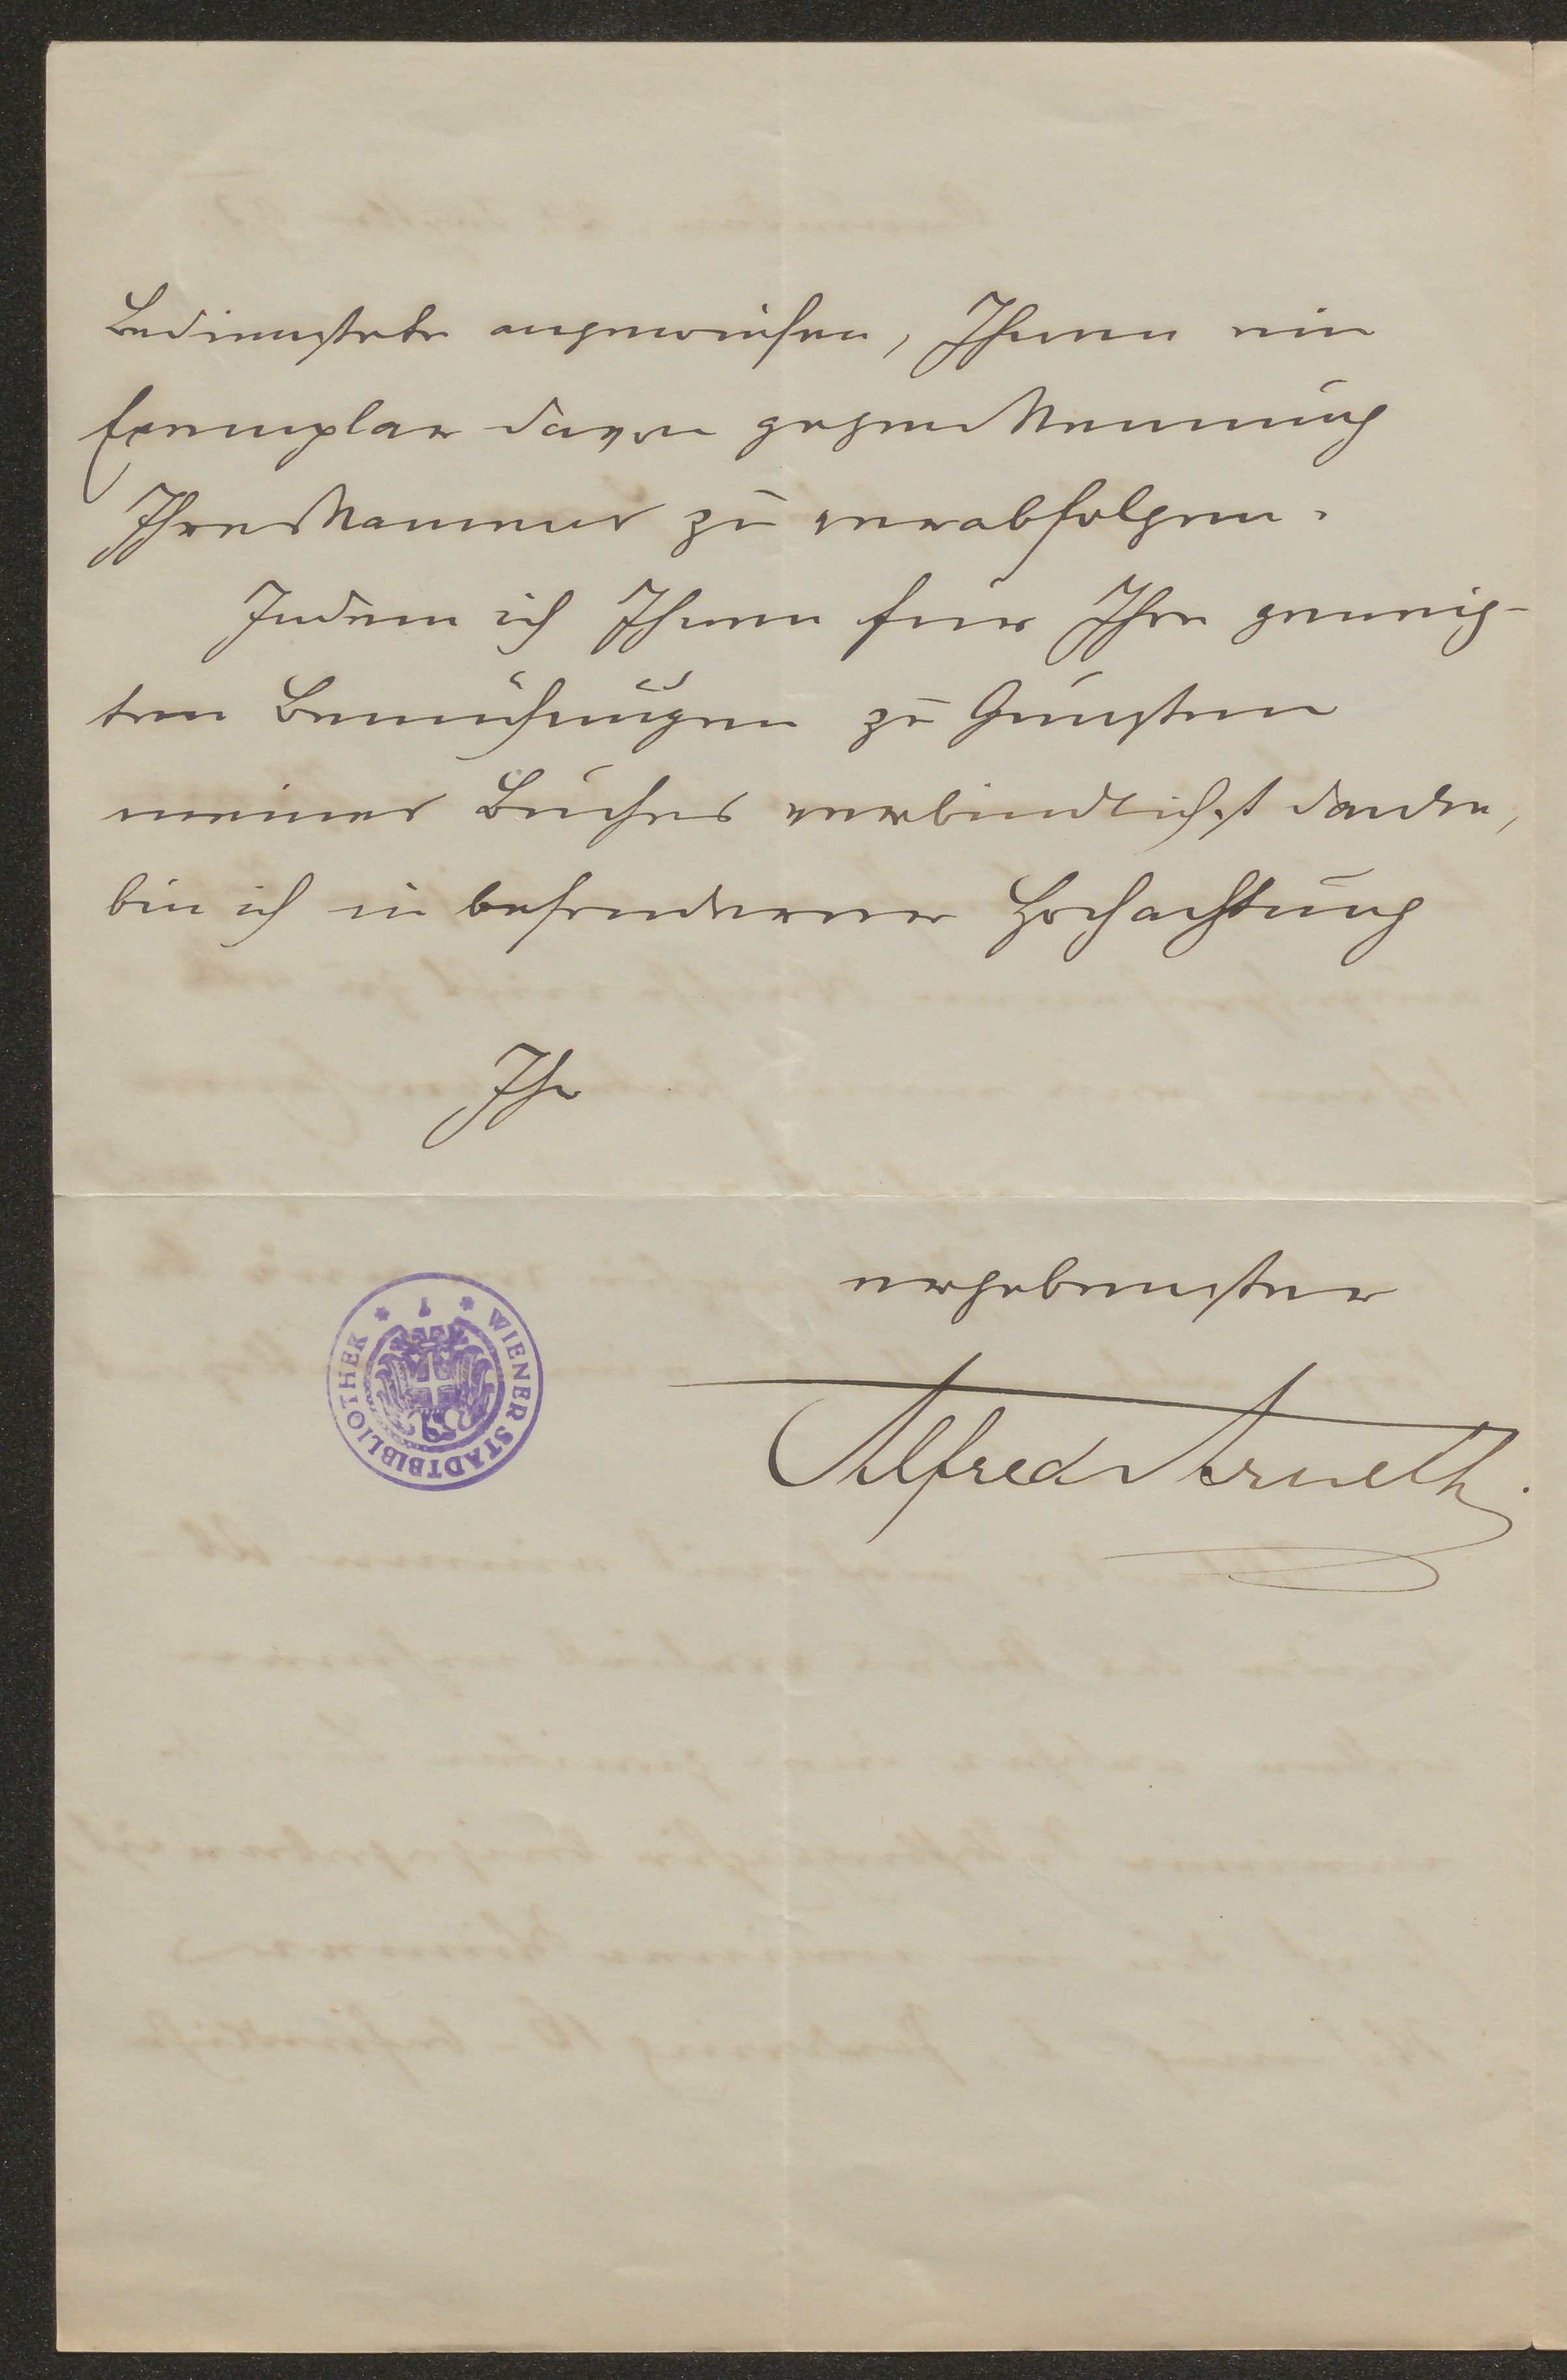 Bedienstete angewiesen, Ihnen ein
Exemplar davon gegen Nennung
Ihres Namens zu verabfolgen.
Indem ich Ihnen für Ihre geneig-
ten Bemühungen zu Gunsten
meines Buches verbindlichst danke,
bin ich in besonderer Hochachtung
Ihr
ergebenster
Alfred Arneth.
WIENER STADTBIBLIOTHEK